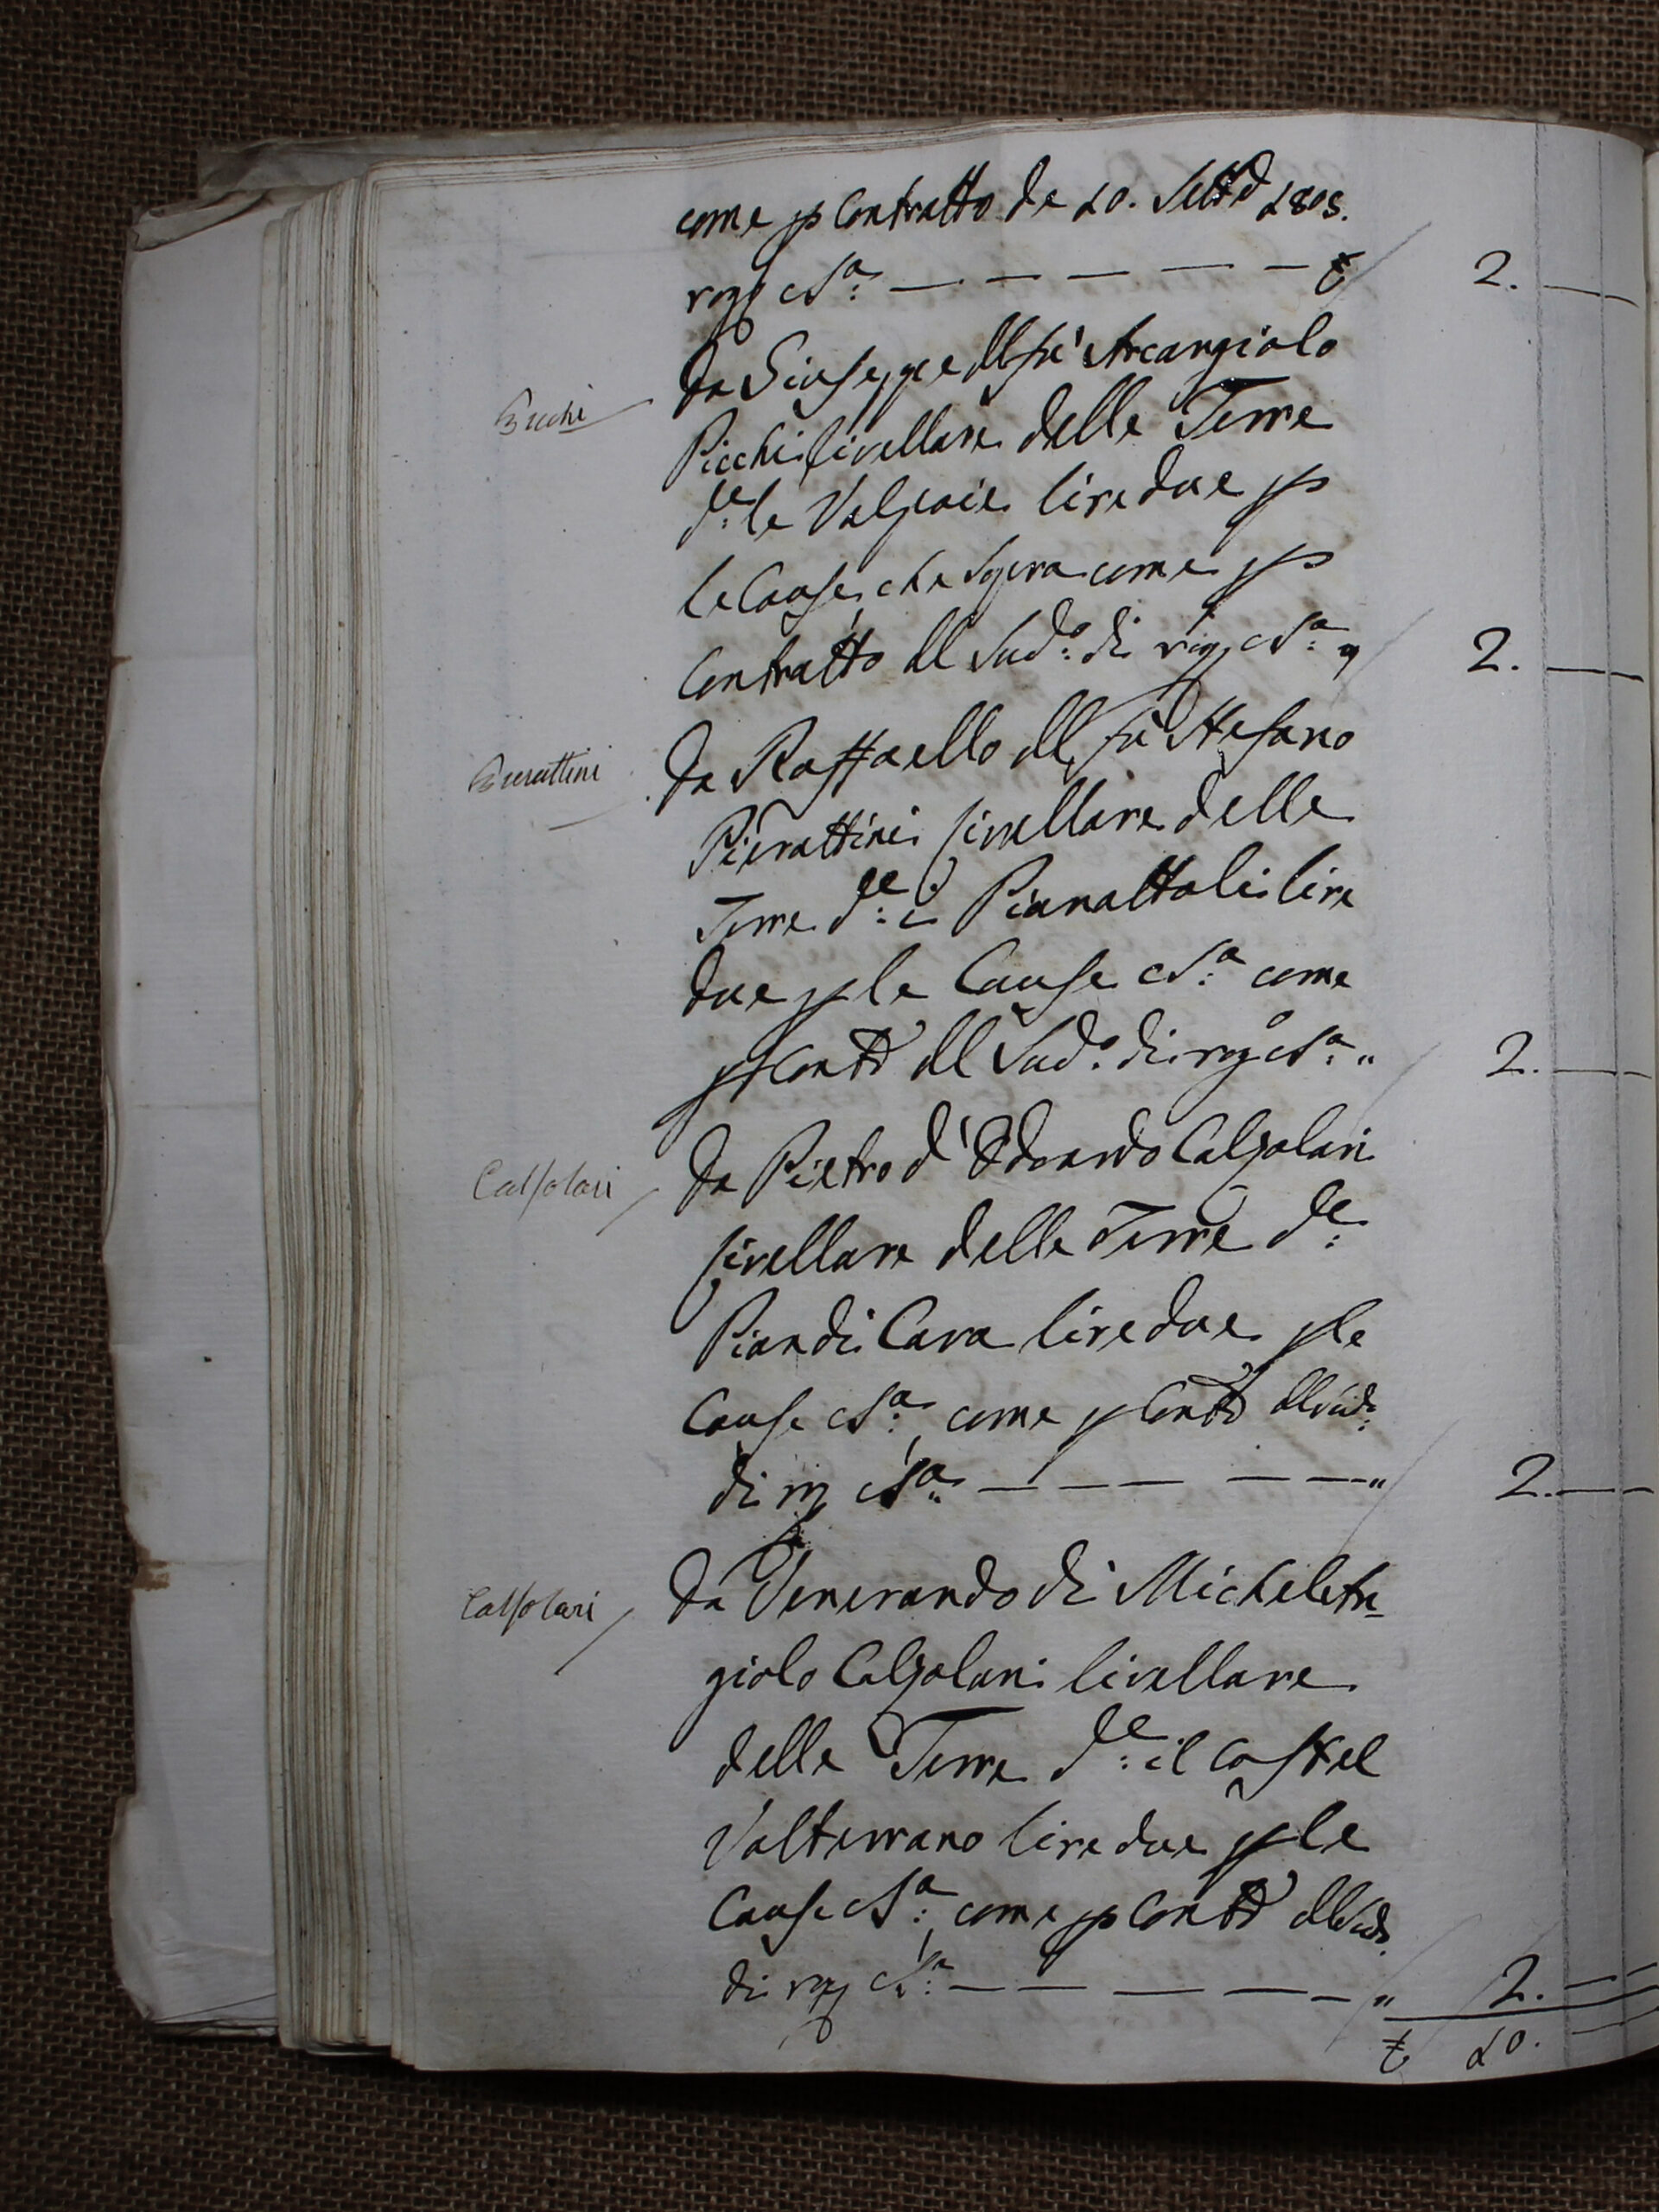 come p Contratto de 10. Sett.e 1808.
rog. c.Sa: — — — — — £ 2. —
Picchi
Da Giuseppe del fù Arcangiolo
Picchi livellare delle Terre
d.e: le Valpaie lire due p
le Cause che sopra come p
Contratto del Sud.o: di rog. c.Sa: " 2. —
Pierattini
Da Raffaello del fù Stefano
Pierattini livellare delle
Terre d.e: i Pianattoli lire
due p le Cause c.Sa: come
p Contt.o del Sud.o: di rog. c.Sa: " 2. —
Calzolari
Da Pietro d'Edoardo Calzolari
livellare delle Terre d.e:
Pian di Cava lire due p le
Cause c.Sa: come p Contt.o del Sud.o:
di rog. c.Sa: — — — — — " 2. —
Calzolari
Da Venerando di Michelan=
giolo Calzolari livellare
delle Terre d.e: il Castel
Valterrano lire due p le
Cause c.Sa: come p Contt.o del Sud.o:
di rog. c.Sa: — — — — — " 2. —
£ 10. —